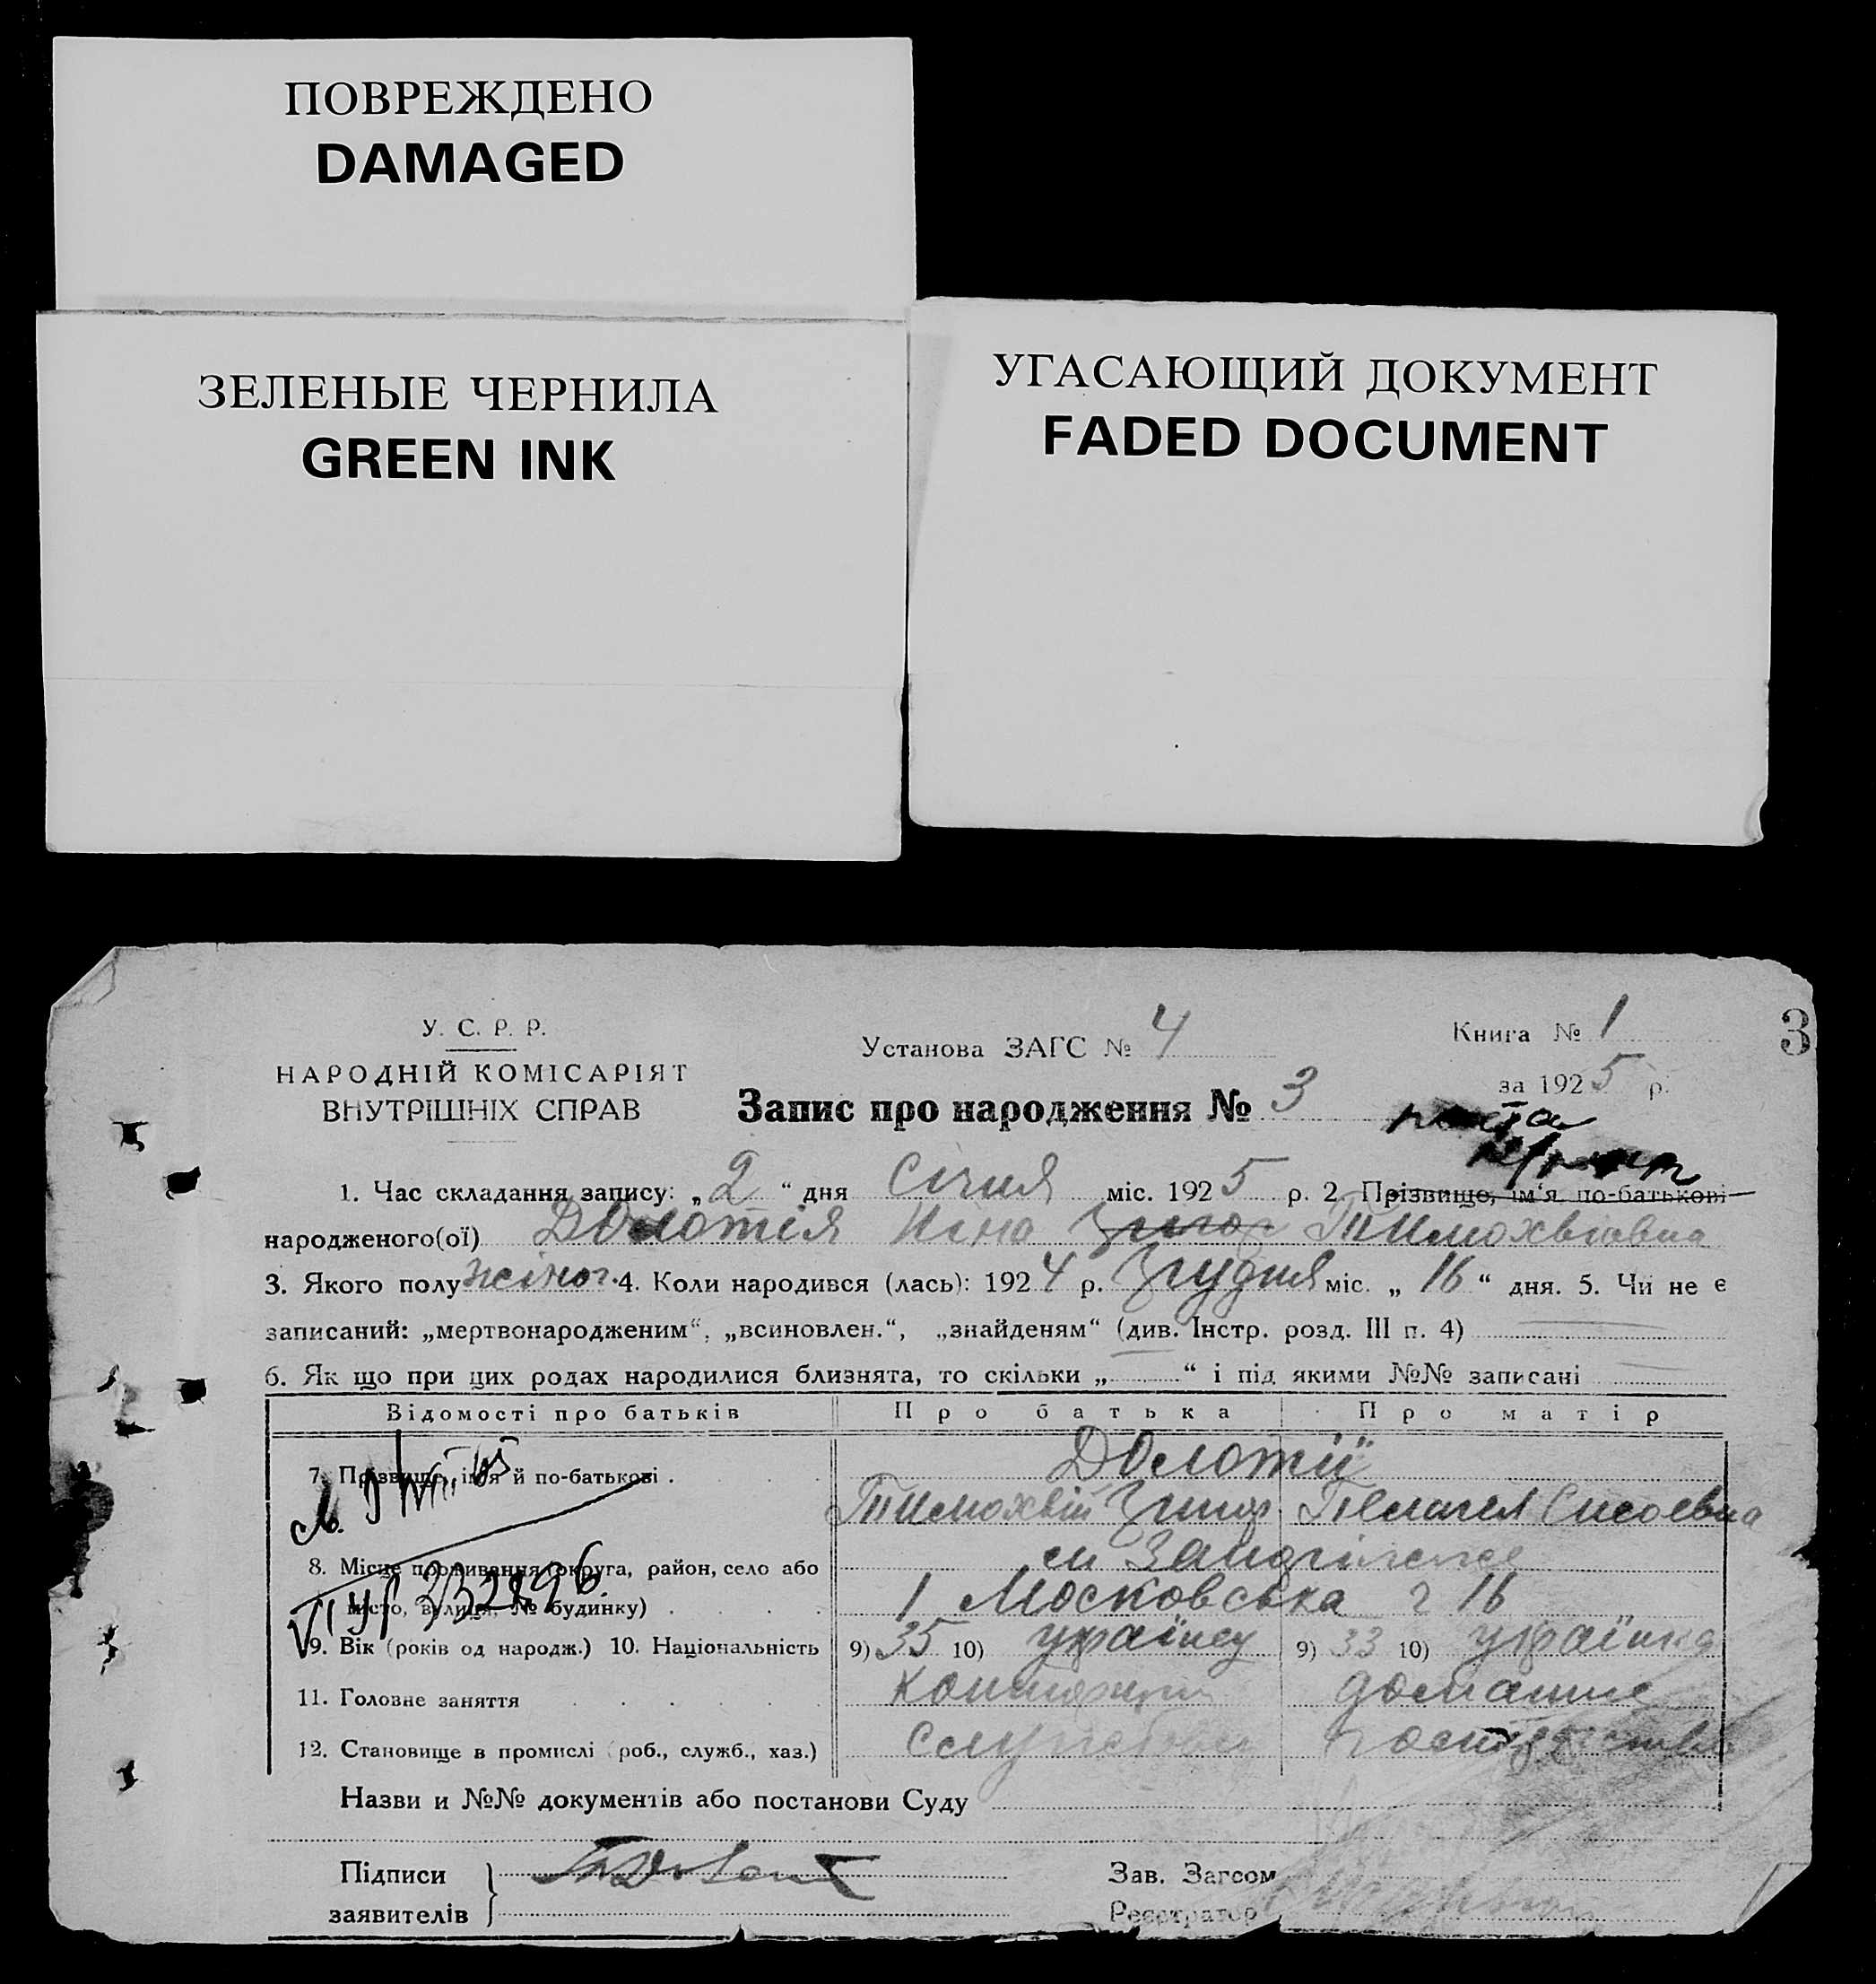 ПОВРЕЖДЕНО
DAMAGED
ЗЕЛЕНЫЕ ЧЕРНИЛА
GREEN INK
УГАСАЮЩИЙ ДОКУМЕНТ
FADED DOCUMENT
У. С. Р. Р.
НАРОДНІЙ КОМІСАРІЯТ
ВНУТРІШНІХ СПРАВ
Установа ЗАГС № 4
Книга № 1
3
за 1925 р.
Запис про народження № 3
1. Час складання запису: „2“ дня Січня міс. 1925 р. 2. Прізвище, ім‘я, по-батькові
народженого(ої) Долотія Ніна Тимохвіовна
3. Якого полу жіноч. 4. Коли народився (лась): 1924 р. Грудня міс. „16“ дня. 5. Чи не є
записаний: „мертвонародженим“, „всиновлен.“, „знайденям“ (див. Інстр. розд. III п. 4)
6. Як що при цих родах народилися близнята, то скільки „ “ і під якими №№ записані
Відомості про батьків Про батька Про матір
7. Прізвище, ім‘я й по-батькові . Долотій
Тимохвій Григор. Пелагея Сисоевна
8. Місце проживання (округа, район, село або
місто, вулиця, № будинку) 1 Московська 16
9. Вік (років од народж.) 10. Національність 9) 35 10) українец 9) 33 10) українка
11. Головне заняття домашне
12. Становище в промислі (роб., служб., хаз.)
Назви и №№ документів або постанови Суду
Підписи
заявителів
Зав. Загсом
Реєстратор